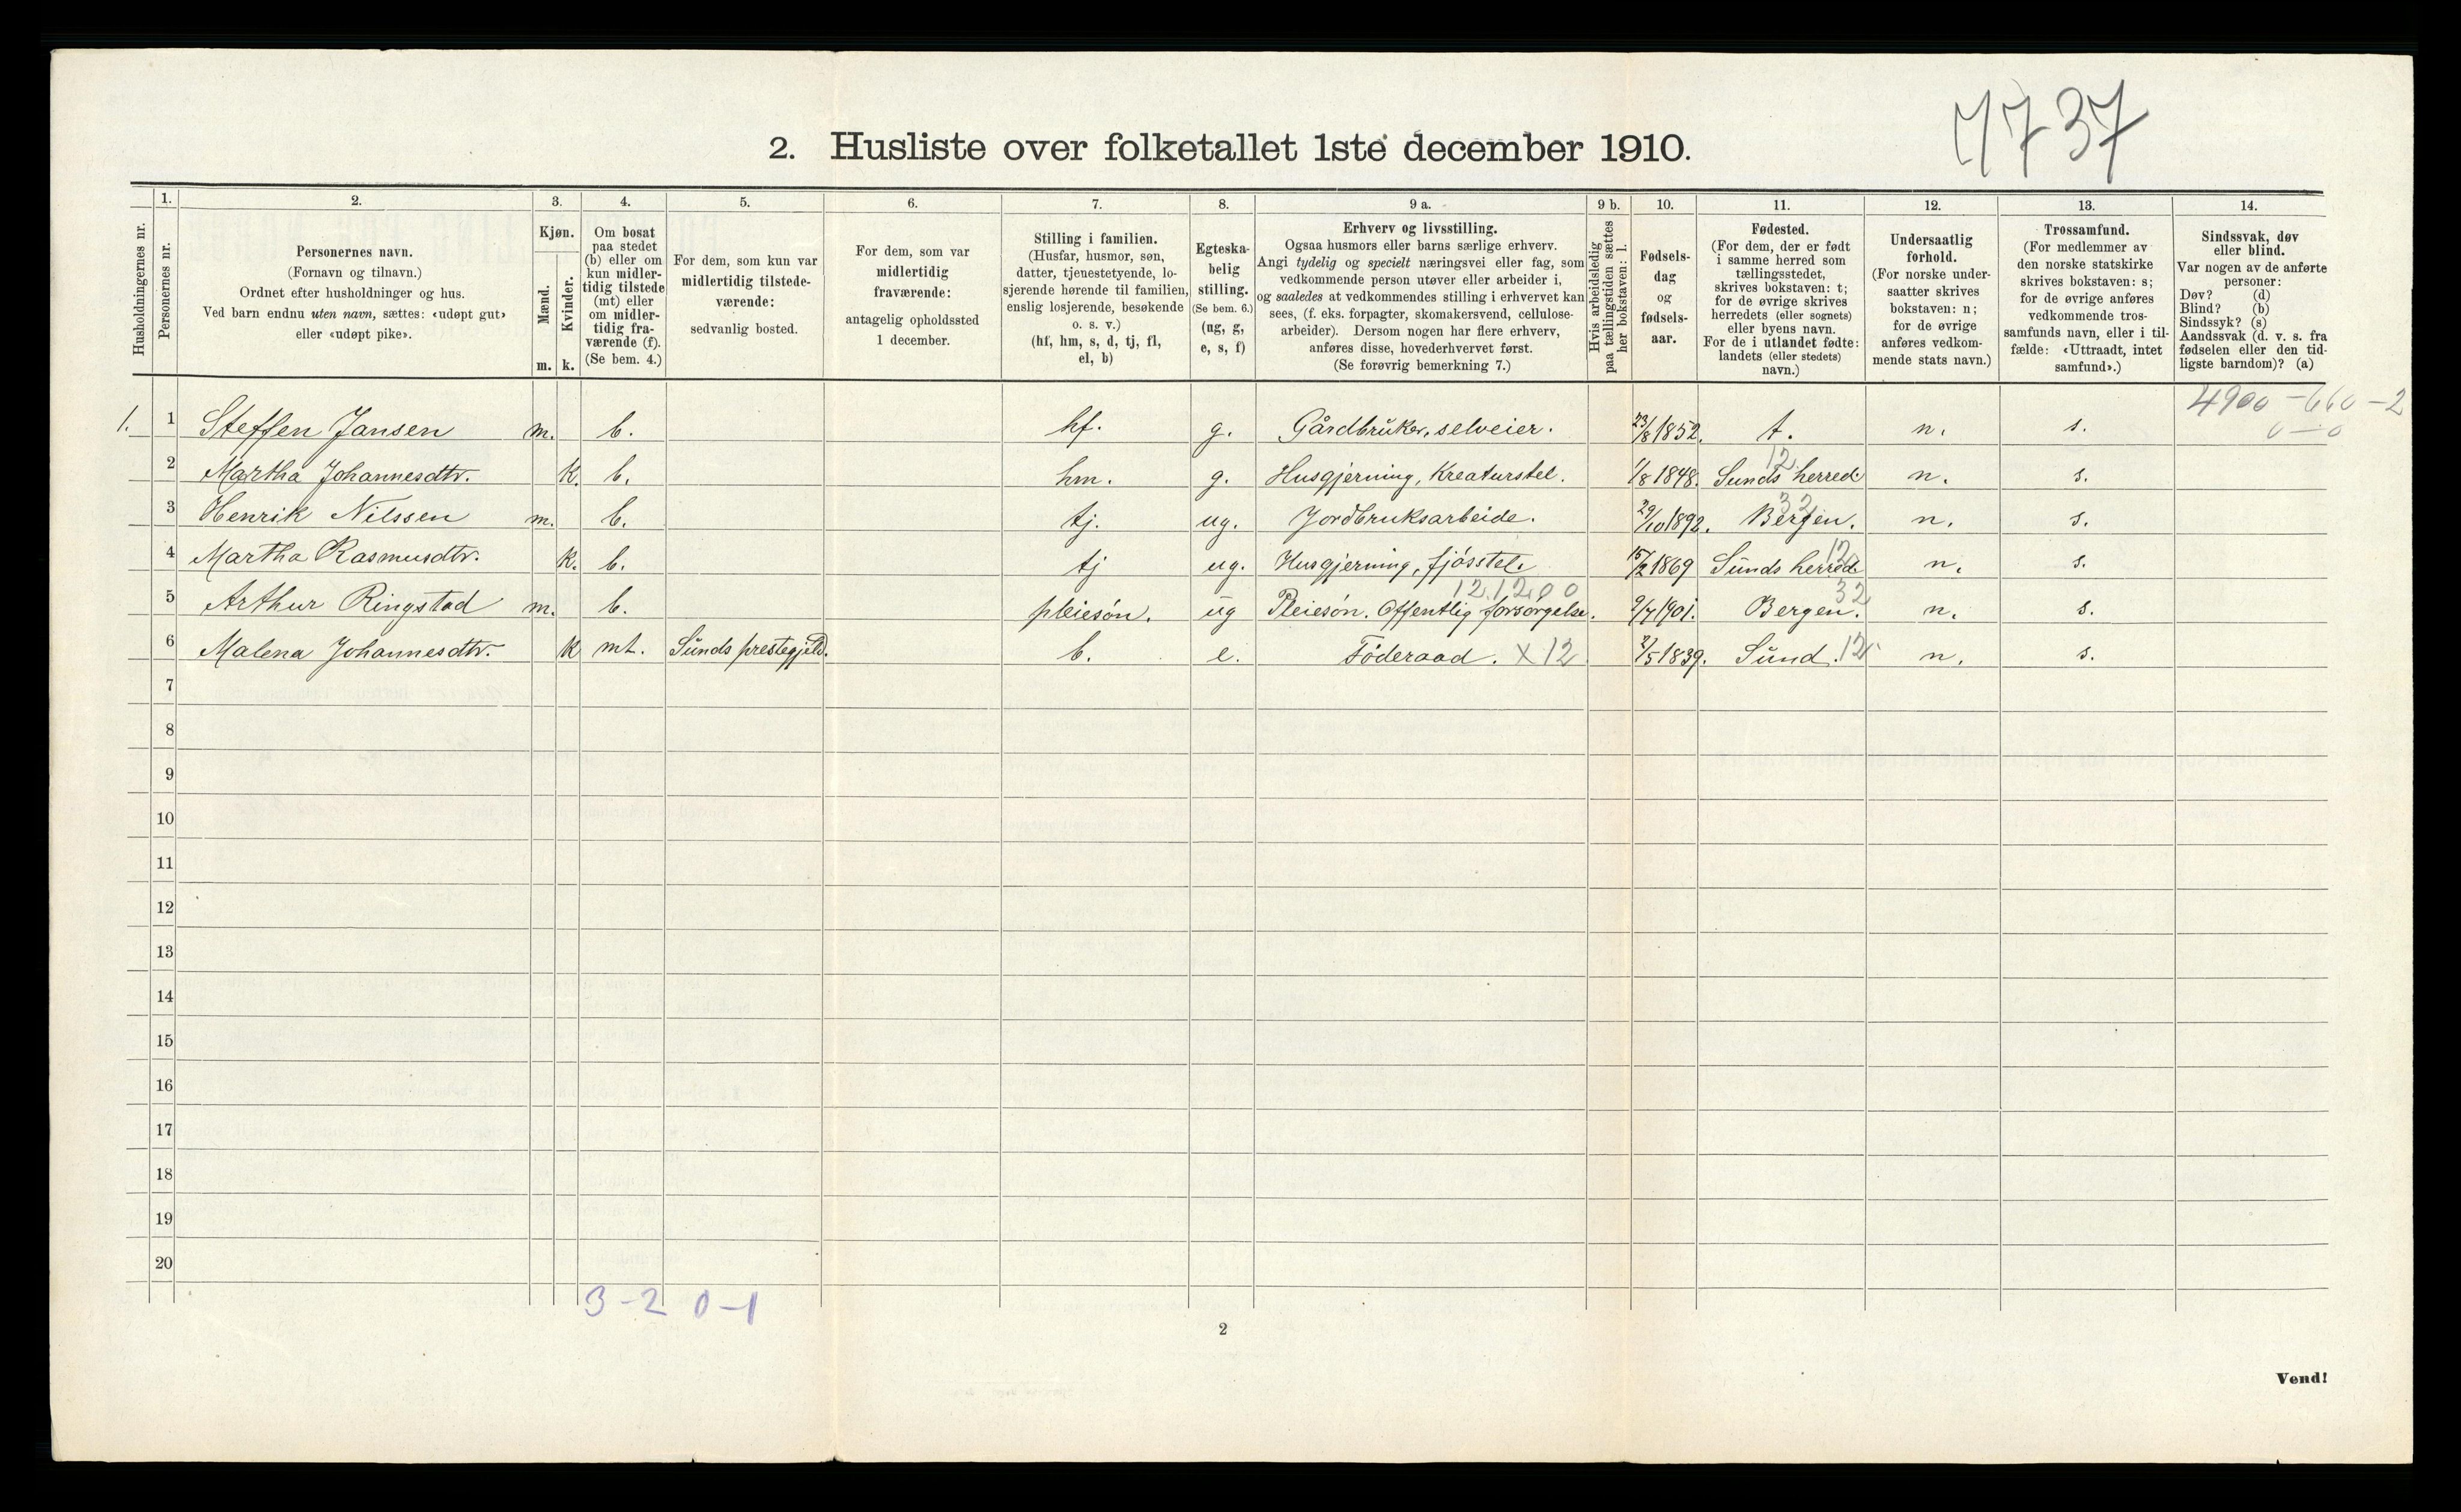 7737
2. Husliste over folketallet 1ste december 1910.
Husholdningernes nr.
1.
Personernes nr.
2.
Personernes navn.
(Fornavn og tilnavn.)
Ordnet efter husholdninger og hus.
Ved barn endnu uten navn, sættes: «udøpt gut»
eller «udøpt pike».
3.
Kjøn.
Mænd.
Kvinder.
m. k.
4.
Om bosat
paa stedet
(b) eller om
kun midler-
tidig tilstede
(mt) eller
om midler-
tidig fra-
værende (f).
(Se bem. 4.)
5.
For dem, som kun var
midlertidig tilstede-
værende:
sedvanlig bosted.
6.
For dem, som var
midlertidig
fraværende:
antagelig opholdssted
1 december.
7.
Stilling i familien.
(Husfar, husmor, søn,
datter, tjenestetyende, lo-
sjerende hørende til familien,
enslig losjerende, besøkende
o. s. v.)
(hf, hm, s, d, tj, fl,
el, b)
8.
Egteska-
belig
stilling.
(Se bem. 6.)
(ug, g,
e, s, f)
9 a.
Erhverv og livsstilling.
Ogsaa husmors eller barns særlige erhverv.
Angi tydelig og specielt næringsvei eller fag, som
vedkommende person utøver eller arbeider i,
og saaledes at vedkommendes stilling i erhvervet kan
sees, (f. eks. forpagter, skomakersvend, cellulose-
arbeider). Dersom nogen har flere erhverv,
anføres disse, hovederhvervet først.
(Se forøvrig bemerkning 7.)
9 b.
Hvis arbeidsledig
paa tællingstiden sættes
her bokstaven: l.
10.
Fødsels-
dag
og
fødsels-
aar.
11.
Fødested.
(For dem, der er født
i samme herred som
tællingsstedet,
skrives bokstaven: t;
for de øvrige skrives
herredets (eller sognets)
eller byens navn.
For de i utlandet fødte:
landets (eller stedets)
navn.)
12.
Undersaatlig
forhold.
(For norske under-
saatter skrives
bokstaven: n;
for de øvrige
anføres vedkom-
mende stats navn.)
13.
Trossamfund.
(For medlemmer av
den norske statskirke
skrives bokstaven: s;
for de øvrige anføres
vedkommende tros-
samfunds navn, eller i til-
fælde: «Uttraadt, intet
samfund».)
14.
Sindssvak, døv
eller blind.
Var nogen av de anførte
personer:
Døv? (d)
Blind? (b)
Sindssyk? (s)
Aandssvak (d. v. s. fra
fødselen eller den tid-
ligste barndom)? (a)
4900 - 660 - 2
0 - 0
1. 1 Steffen Jansen m. b. hf. g. Gårdbruker, selveier. 23/8 1852. t. n. s.
12
2 Martha Johannesdtr. k. b. hm. g. Husgjerning, Kreaturstel. 1/8 1848. Sunds herred n. s.
32
3 Henrik Nilssen m. b. tj. ug. Jordbruksarbeide. 29/10 1892. Bergen. n. s.
12
4 Martha Rasmusdtr. k. b. tj ug. Husgjerning, fjósstel. 15/2 1869 Sunds herred n. s.
12.1200 32
5 Arthur Ringstad m. b. pleiesón. ug Pleiesón. Offentlig forsórgelse. 9/7 1901. Bergen. n. s.
6 Malena Johannesdtr. k mt. Sunds prestegjeld. b. e. Fóderaad. x 12 2/5 1839. Sund. 12 n. s.
7
8
9
10
11
12
13
14
15
16
17
18
19
20
3 - 2 0 - 1
2
Vend!